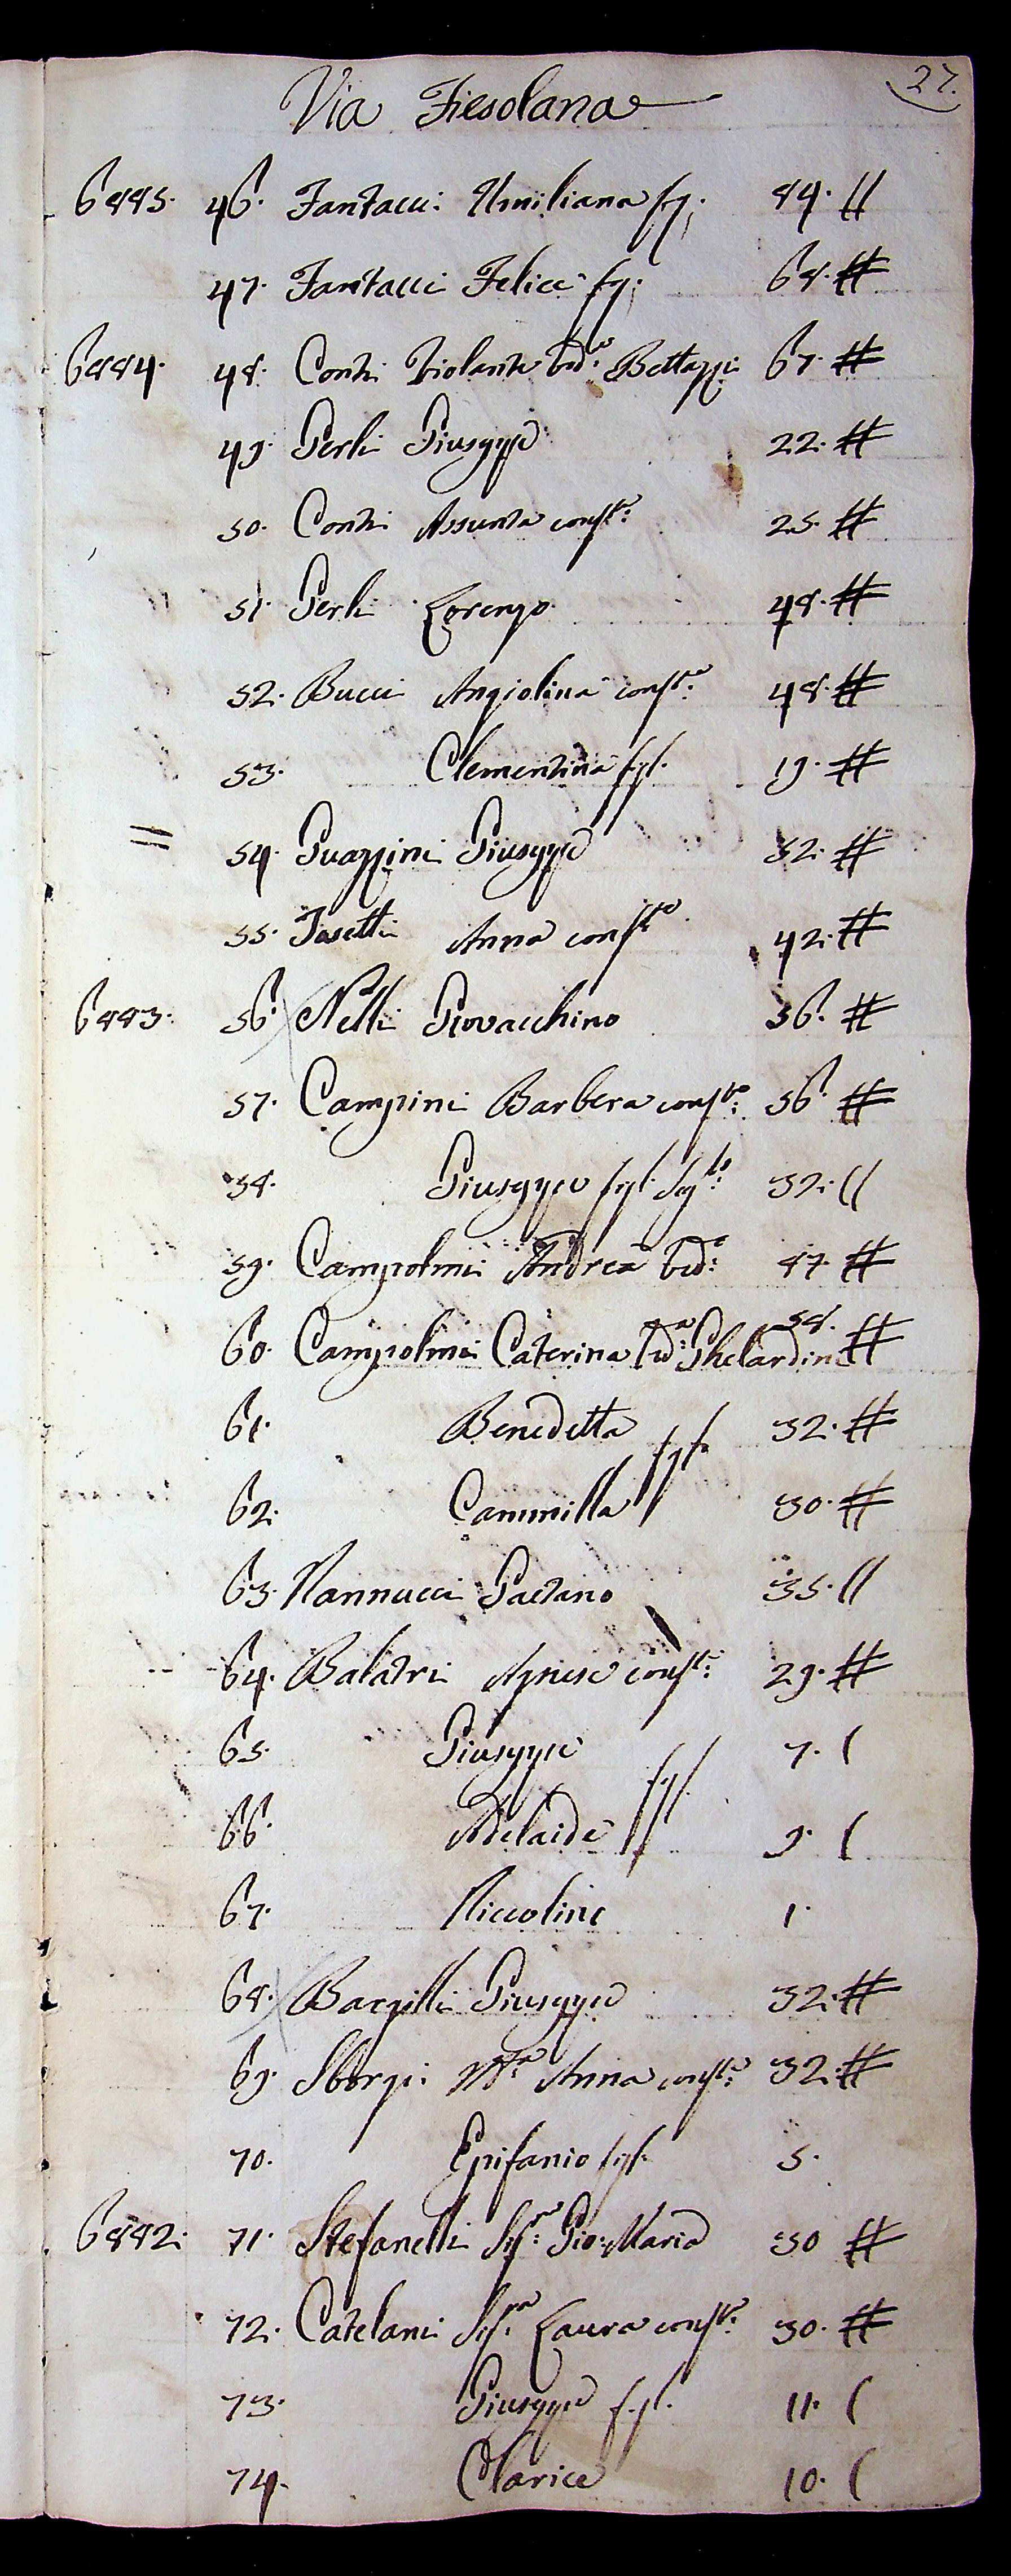 27.
Via Fiesolana
6885. 46. Fantacci Umiliana fg. 84. //
47. Fantacci Felice fg. 68. #
6884. 48. Conti Violante Ved.ª Bettazzi 67. #
49. Gerli Giuseppe 22. #
50. Conti Assunta cons.te 25. #
51. Gerli Lorenzo 48. #
52. Bucci Angiolina cons.te 48. #
53. Clementina fgl. 19. #
= 54. Guazzini Giuseppe 52. #
55. Anna cons.te 42. #
6883. 56. Nelli Giovacchino 56. #
57. Campini Barbera cons.te 56. #
58. Giuseppe fgl. 32. //
59. Campolmi Andrea Ved.º 47. #
60. Campolmi Caterina Ved.ª Ghelardini 58. #
61. Benedetta 32. #
fgle
62. Cammilla 30. #
63. Nannucci Gaetano 35. //
64. Balatri Agnese cons.te 29. #
65. Giuseppe 7. /
fgl.
66. Adelaide 9. /
67. Niccolina 1.
68. Barzelli Giuseppe 32. #
69. Sborgi M.ª Anna cons.te 32. #
70. Epifanio fgl. 5.
6882. 71. Stefanelli Sig.re Gio: Maria 30 #
72. Catelani Sig.ra Laura cons.te 30. #
73. Giuseppe fgl. 11. /
74. Clarice 10. /